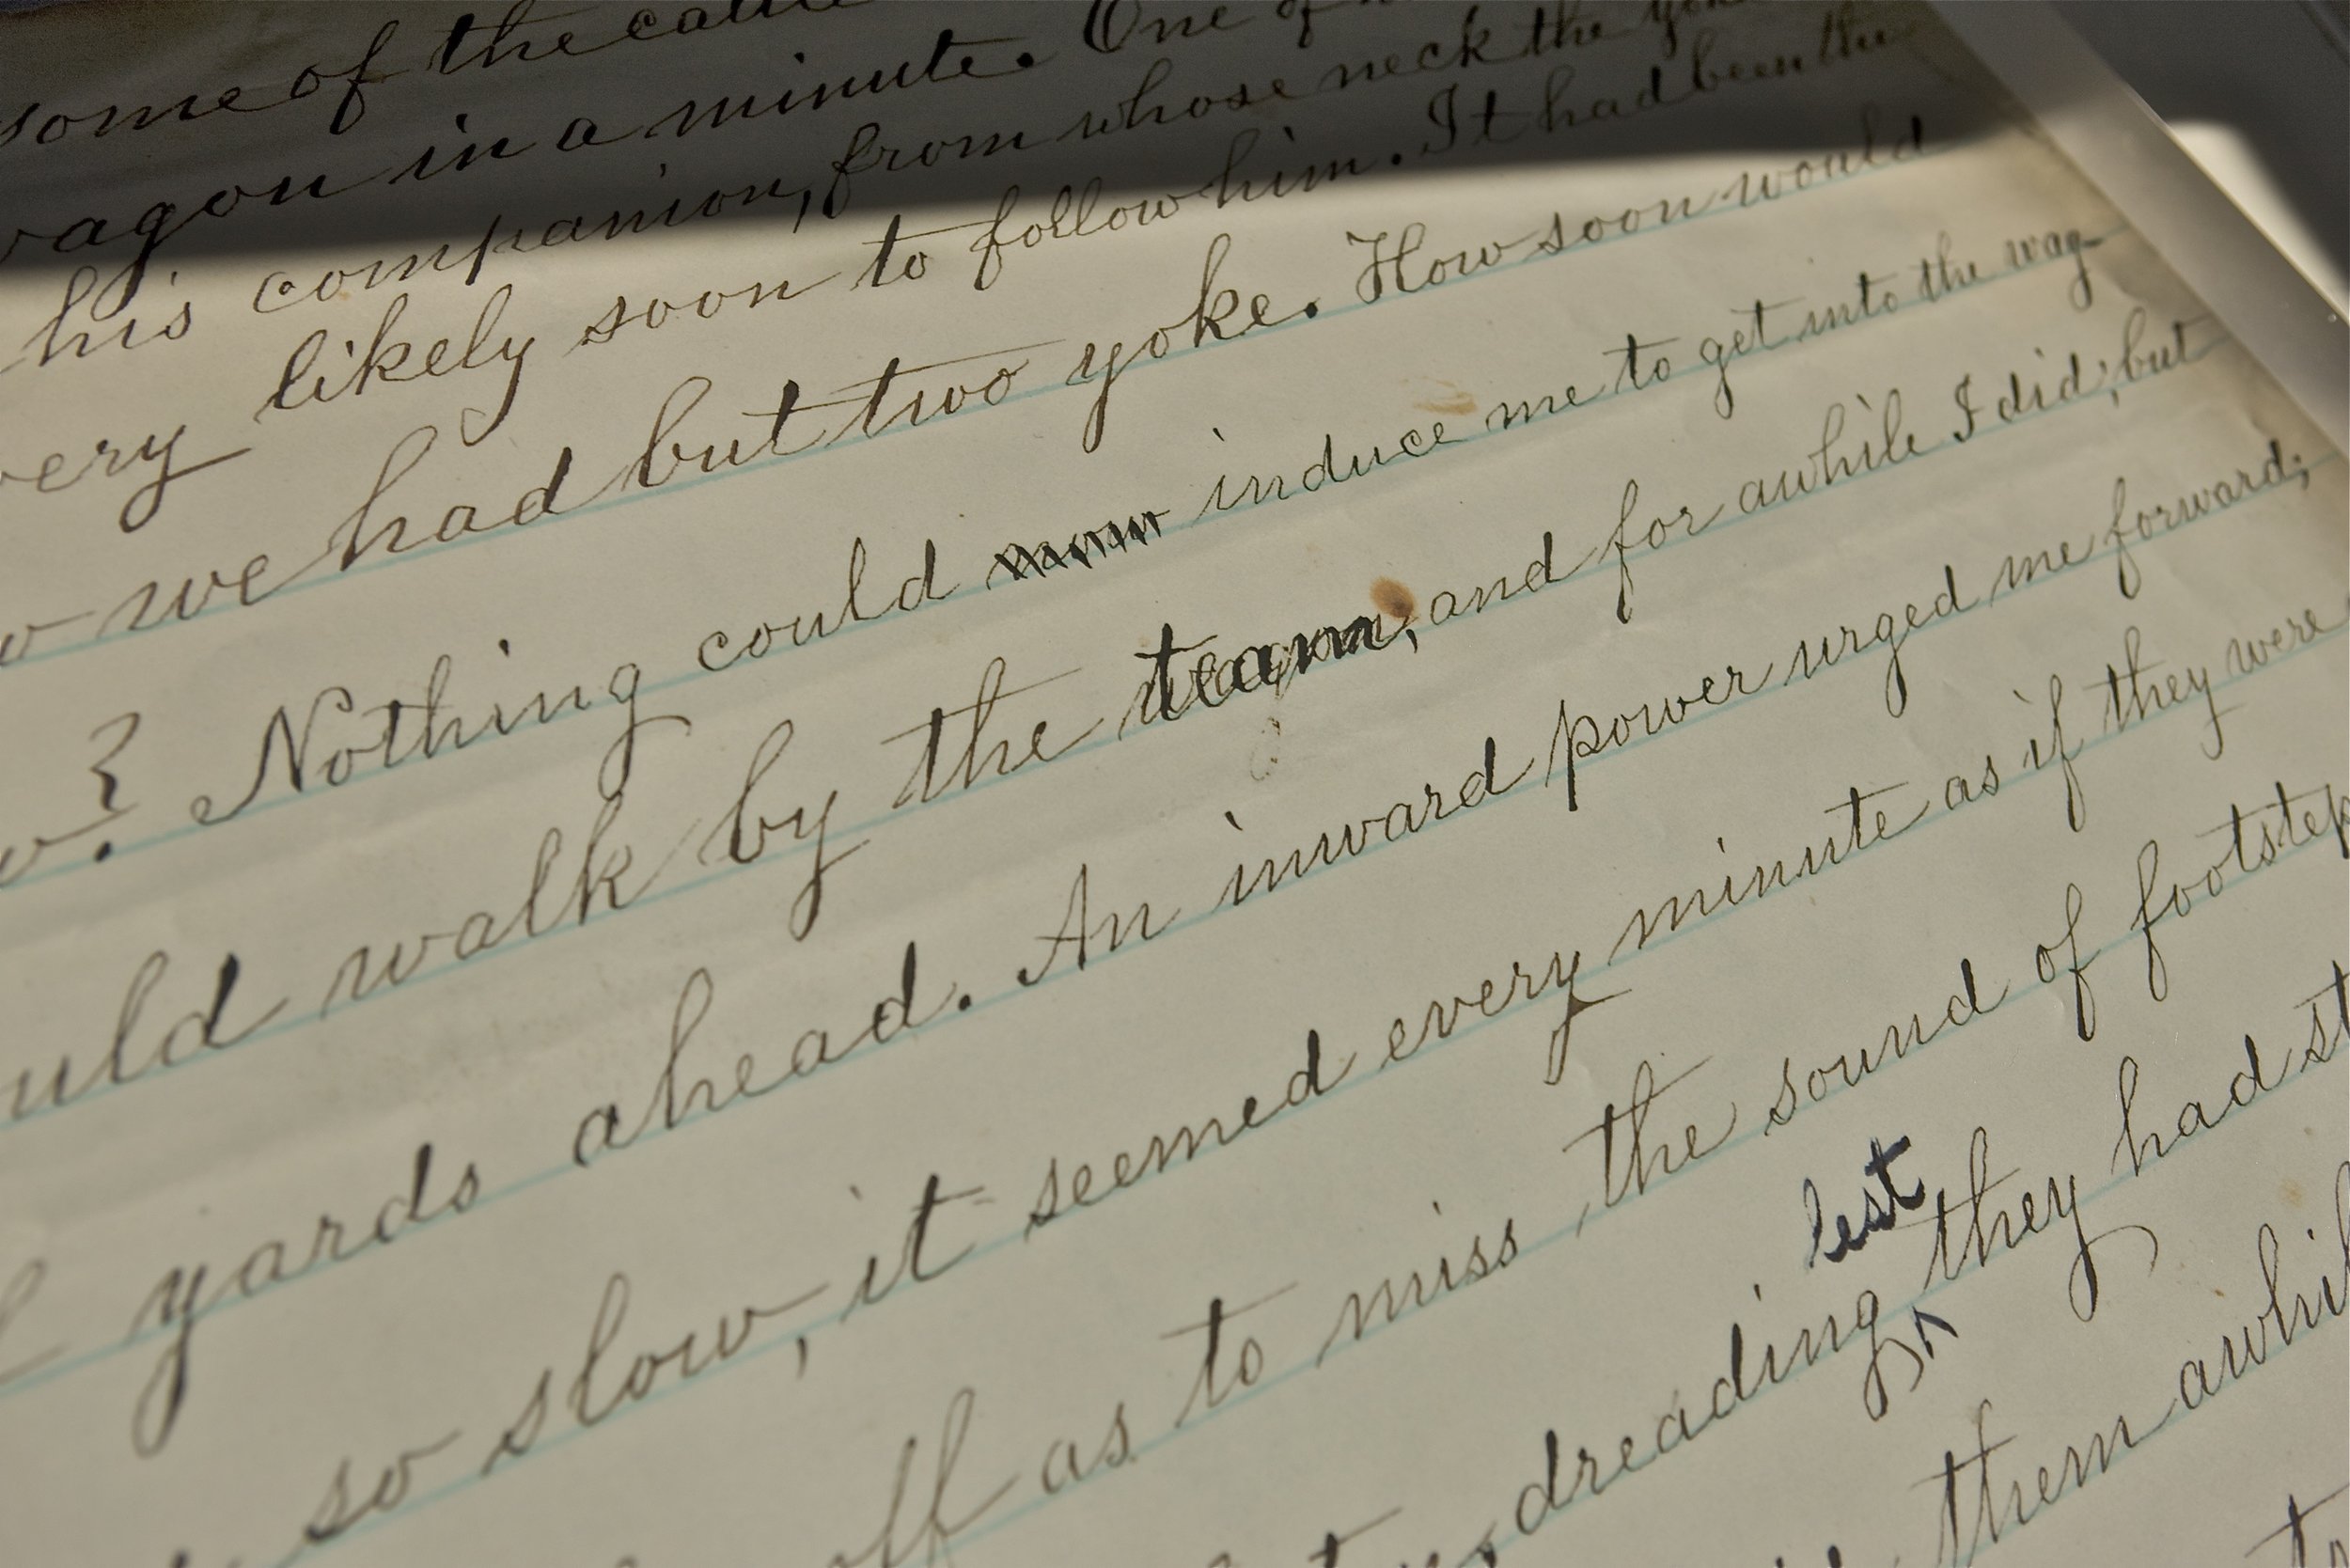 some of the
in a minute. One of
his companion, from whose neck the
likely soon to follow him. It had been the
we had but two yoke. How soon would
? Nothing could induce me to get into the wag-
walk by the team, and for awhile I did; but
yards ahead. An inward power urged me forward;
so slow, it seemed every minute as if they were
as to miss the sound of
lest
dreading ^ they had
them